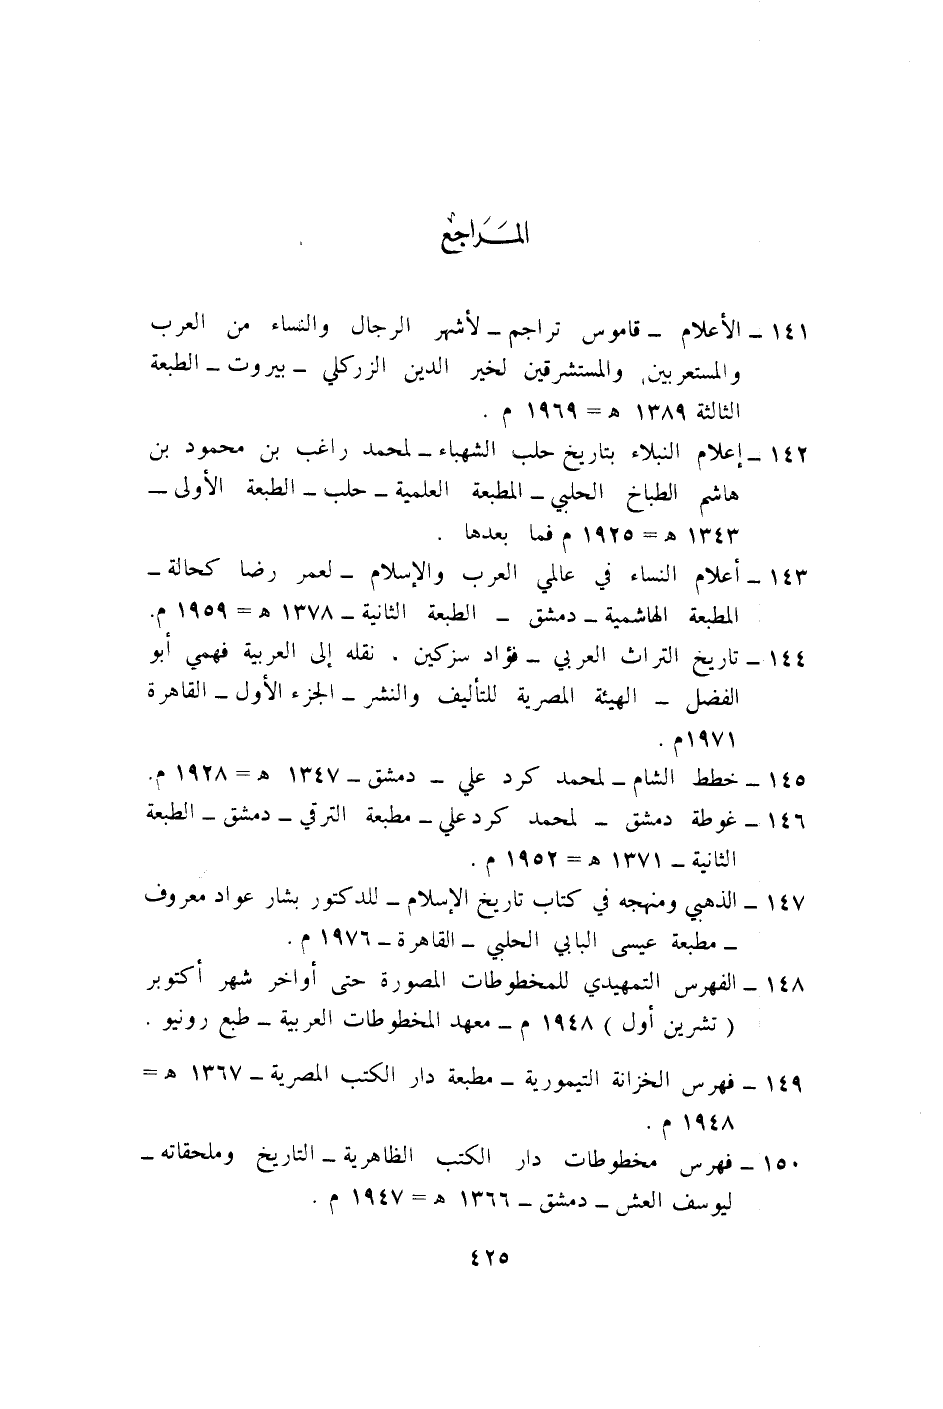 المَرَاجعُ
١٤١ ـ الأعلام ـ قاموس تراجم ـ لأشهر الرجال والنساء من العرب
والمستعربين والمستشرقين لخير الدين الزركلي ـ بيروت ـ الطبعة
الثالثة ١٣٨٩ هـ = ١٩٦٩ م .
١٤٢ ـ إعلام النبلاء بتاريخ حلب الشهباء ـ لمحمد راغب بن محمود بن
هاشم الطباخ الحلبي ـ المطبعة العلمية ـ حلب ـ الطبعة الأولى ـ
١٣٤٣ هـ = ١٩٢٥ م فما بعدها .
١٤٣ ـ أعلام النساء في عالمي العرب والإسلام ـ لعمر رضا كحالة ـ
المطبعة الهاشمية ـ دمشق ـ الطبعة الثانية ـ ١٣٧٨ هـ = ١٩٥٩ م.
١٤٤ ـ تاريخ التراث العربي ـ فؤاد سزكين . نقله إلى العربية فهمي أبو
الفضل ـ الهيئة المصرية للتأليف والنشر ـ الجزء الأول ـ القاهرة
١٩٧١م .
١٤٥ ـ خطط الشام ـ لمحمد كرد علي ـ دمشق ـ ١٣٤٧ هـ = ١٩٢٨ م.
١٤٦ ـ غوطة دمشق ـ لمحمد كرد علي ـ مطبعة الترقي ـ دمشق ـ الطبعة
الثانية ـ ١٣٧١ هـ = ١٩٥٢ م .
١٤٧ ـ الذهبي ومنهجه في كتاب تاريخ الإسلام ـ للدكتور بشار عواد معروف
ـ مطبعة عيسى البابي الحلبي ـ القاهرة ـ ١٩٧٦ م .
١٤٨ ـ الفهرس التمهيدي للمخطوطات المصورة حتى أواخر شهر أكتوبر
( تشرين أول ) ١٩٤٨ م ـ معهد المخطوطات العربية ـ طبع رونيو .
١٤٩ ـ فهرس الخزانة التيمورية ـ مطبعة دار الكتب المصرية ـ ١٣٦٧ هـ =
١٩٤٨ م .
١٥٠ ـ فهرس مخطوطات دار الكتب الظاهرية ـ التاريخ وملحقاته ـ
ليوسف العش ـ دمشق ـ ١٣٦٦ هـ = ١٩٤٧ م .
٤٢٥